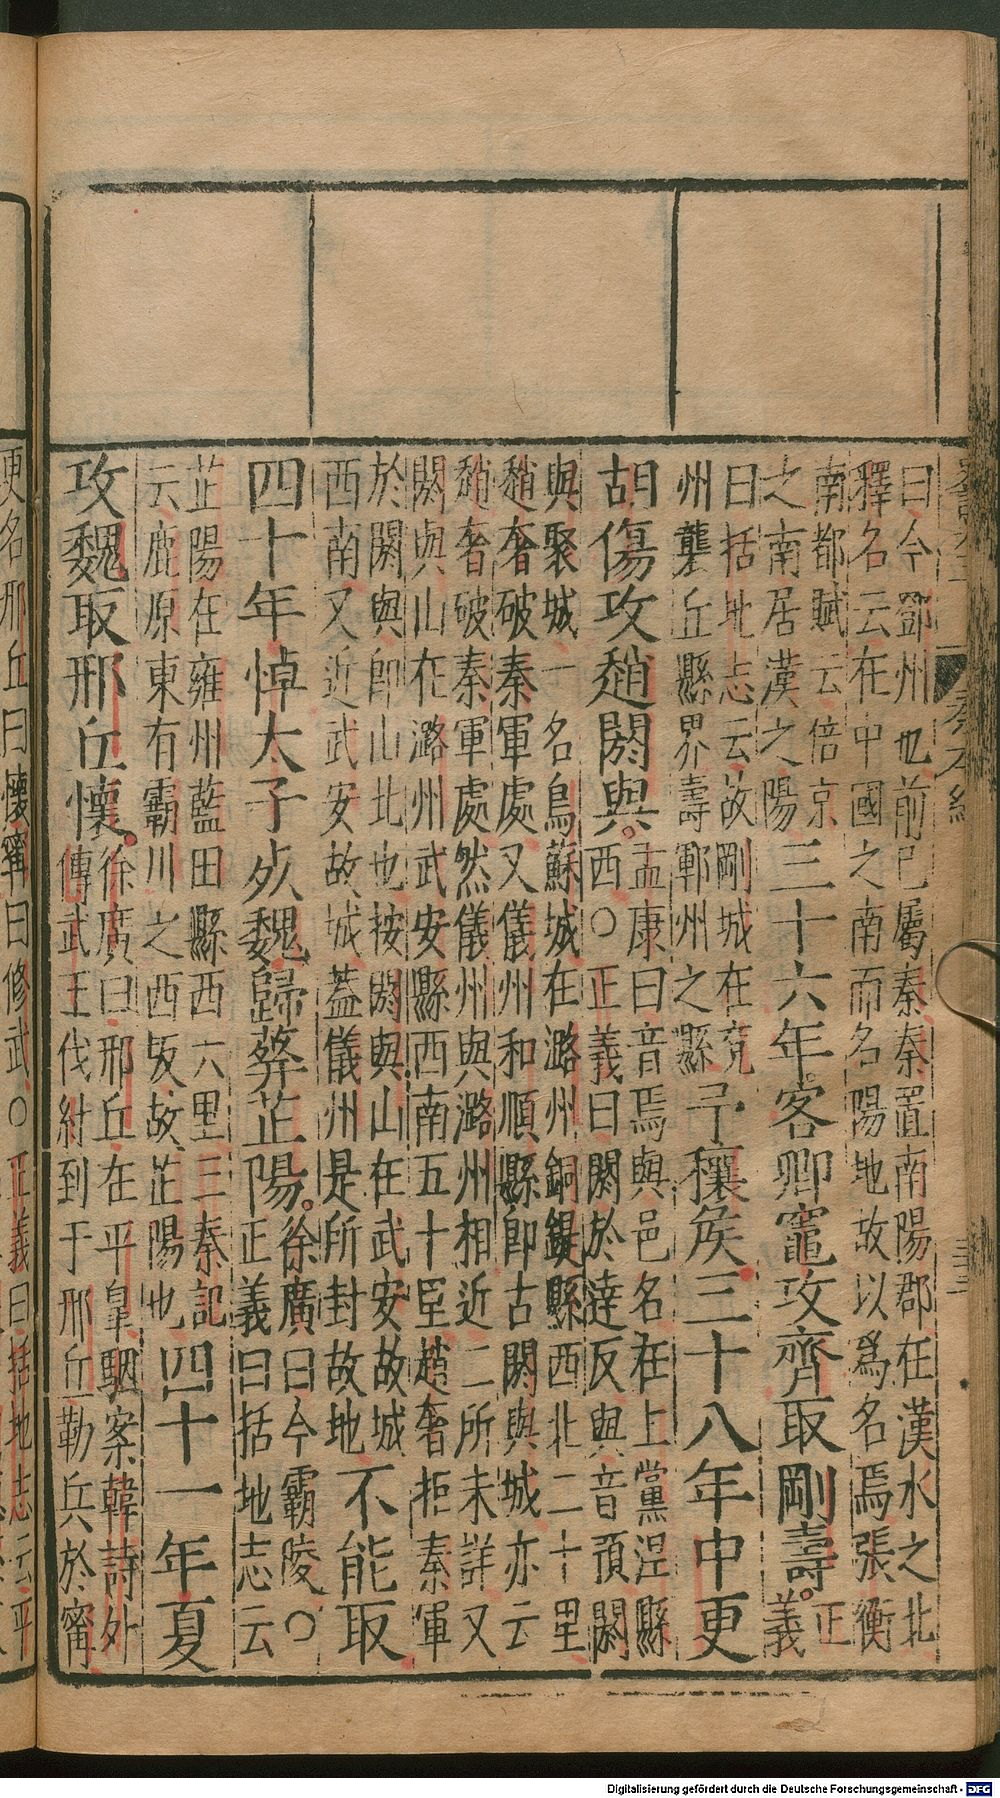 秦本紀
曰今鄧州也前已屬秦秦置南陽郡在漢水之北
釋名云在中國之南而名陽地故以爲名焉張衡
南都賦云倍京
之南居漢之陽
三十六年客卿竈攻齊取剛壽
正
義
曰括地志云故剛城在兗
州龔丘縣界壽鄆州之縣
予穰侯三十八年中更
胡傷攻趙閼與
孟康曰音焉與邑名在上黨涅縣
西○正義曰閼於達反與音預閼
與聚城一名烏蘇城在潞州銅鍉縣西北二十里
趙奢破秦軍處又儀州和順縣卽古閼與城亦云
趙奢破秦軍處然儀州與潞州相近二所未詳又
閼與山在潞州武安縣西南五十臣趙奢拒秦軍
於閼與卽山北也按閼與山在武安故城
西南又近武安故城蓋儀州是所封故地
不能取
四十年悼太子死魏歸葬芷陽
徐廣曰今霸陵○
正義曰括地志云
芷陽在雍州藍田縣西六里三秦記
云鹿原東有霸川之西坂故芷陽也
四十一年夏
攻魏取邢丘懷
徐廣曰邢丘在平皐駰案韓詩外
傳武王伐紂到于邢丘勒兵於甯
更名邢丘曰懷甯曰修武○正義曰括地志云平
Digitalisierung gefördert durch die Deutsche Forschungsgemeinschaft - DFG